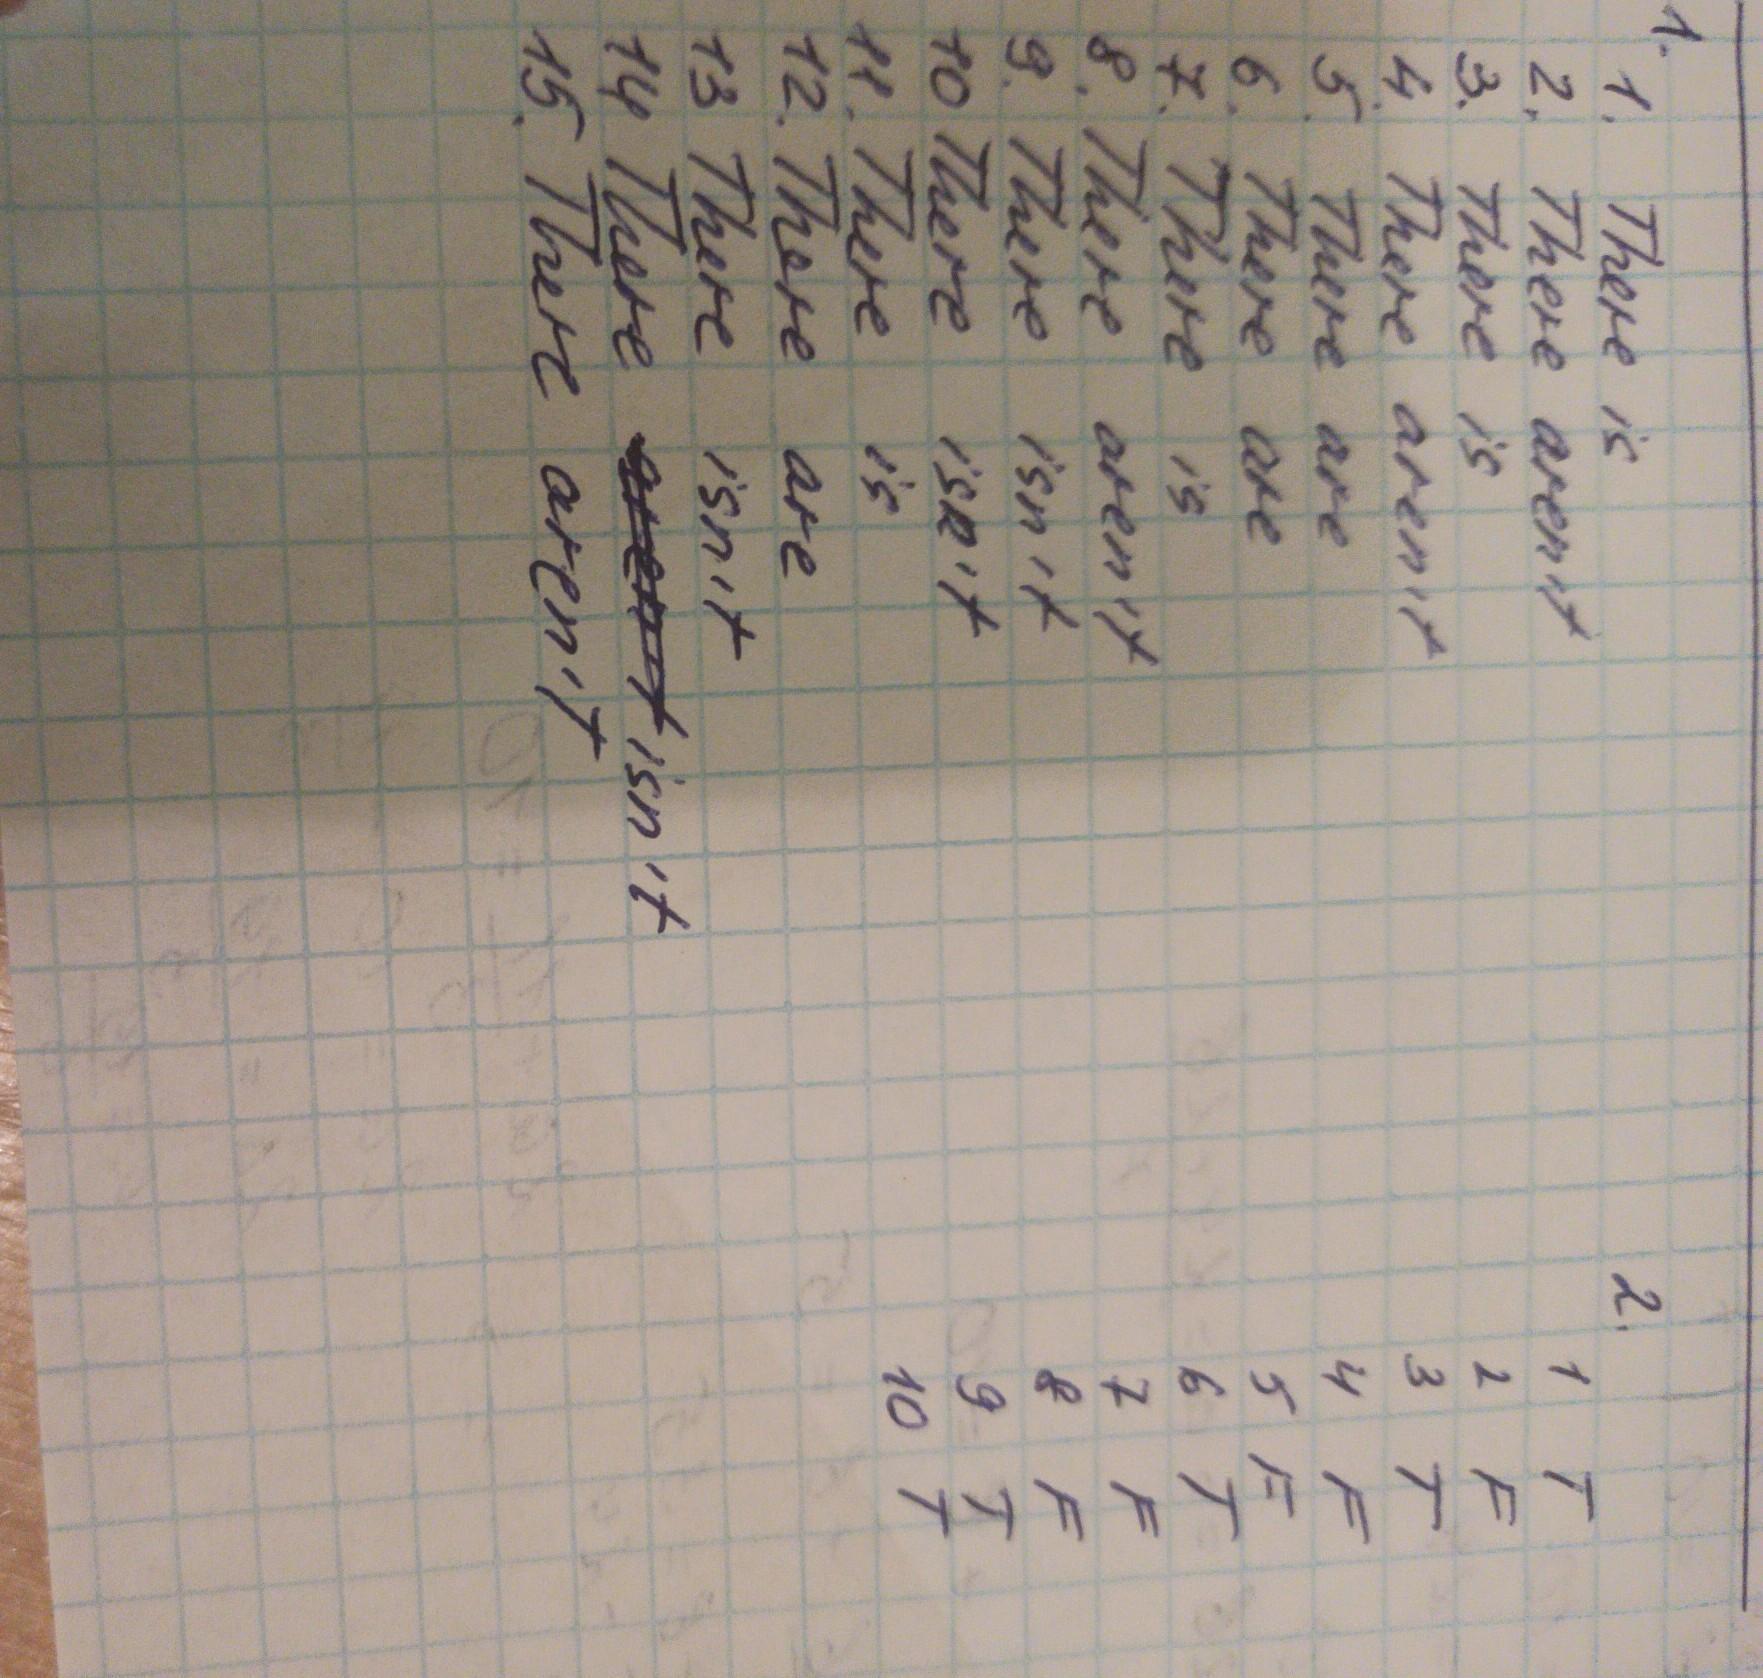 1.
1. There is
2. There aren't
3. There is
4. There aren't
5. There are
6. There are
7. There is
8. There aren't
9. There isn't
10 There isn't
11. There is
12. There are
13 There isn't
14 There isn't
15. There aren't
2.
1 T
2 F
3 T
4 F
5 F
6 T
7 F
8 F
9 T
10 T